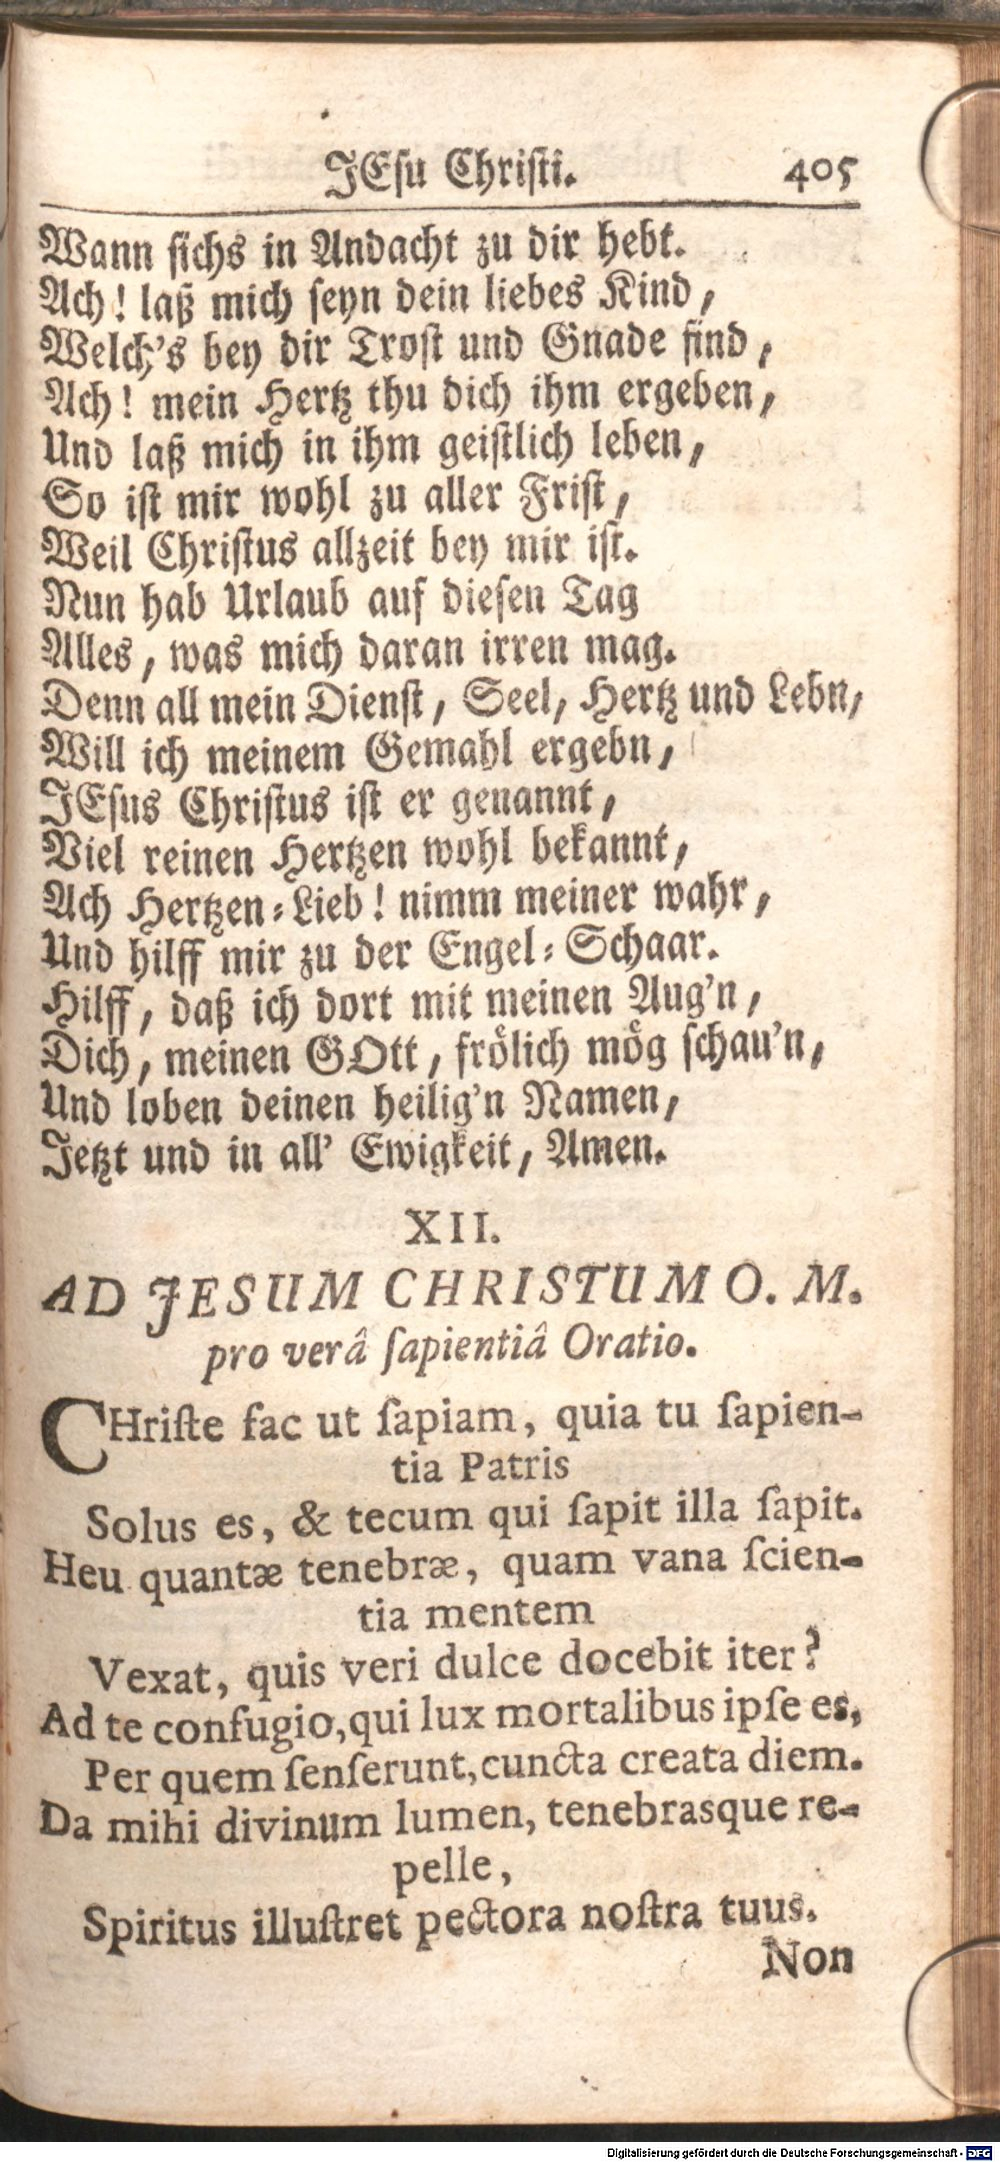 JEsu Christi. 405
Wann sichs in Andacht zu dir hebt.
Ach! laß mich seyn dein liebes Kind,
Welch's bey dir Trost und Gnade find,
Ach! mein Hertz thu dich ihm ergeben,
Und laß mich in ihm geistlich leben,
So ist mir wohl zu aller Frist,
Weil Christus allzeit bey mir ist.
Nun hab Urlaub auf diesen Tag
Alles, was mich daran irren mag.
Denn all mein Dienst, Seel, Hertz und Lebn,
Will ich meinem Gemahl ergebn,
JEsus Christus ist er genannt,
Viel reinen Hertzen wohl bekannt,
Ach Hertzen-Lieb! nimm meiner wahr,
Und hilff mir zu der Engel-Schaar.
Hilff, daß ich dort mit meinen Aug'n,
Dich, meinen GOtt, frölich mög schau'n,
Und loben deinen heilig'n Namen,
Jetzt und in all' Ewigkeit, Amen.
XII.
AD JESUM CHRISTUM O. M.
pro verâ ſapientiâ Oratio.
CHriſte fac ut ſapiam, quia tu ſapien-
tia Patris
Solus es, & tecum qui ſapit illa ſapit.
Heu quantæ tenebræ, quam vana ſcien-
tia mentem
Vexat, quis veri dulce docebit iter?
Ad te confugio, qui lux mortalibus ipſe es,
Per quem ſenſerunt, cuncta creata diem.
Da mihi divinum lumen, tenebrasque re-
pelle,
Spiritus illuſtret pectora noſtra tuus.
Non
Digitalisierung gefördert durch die Deutsche Forschungsgemeinschaft - DFG